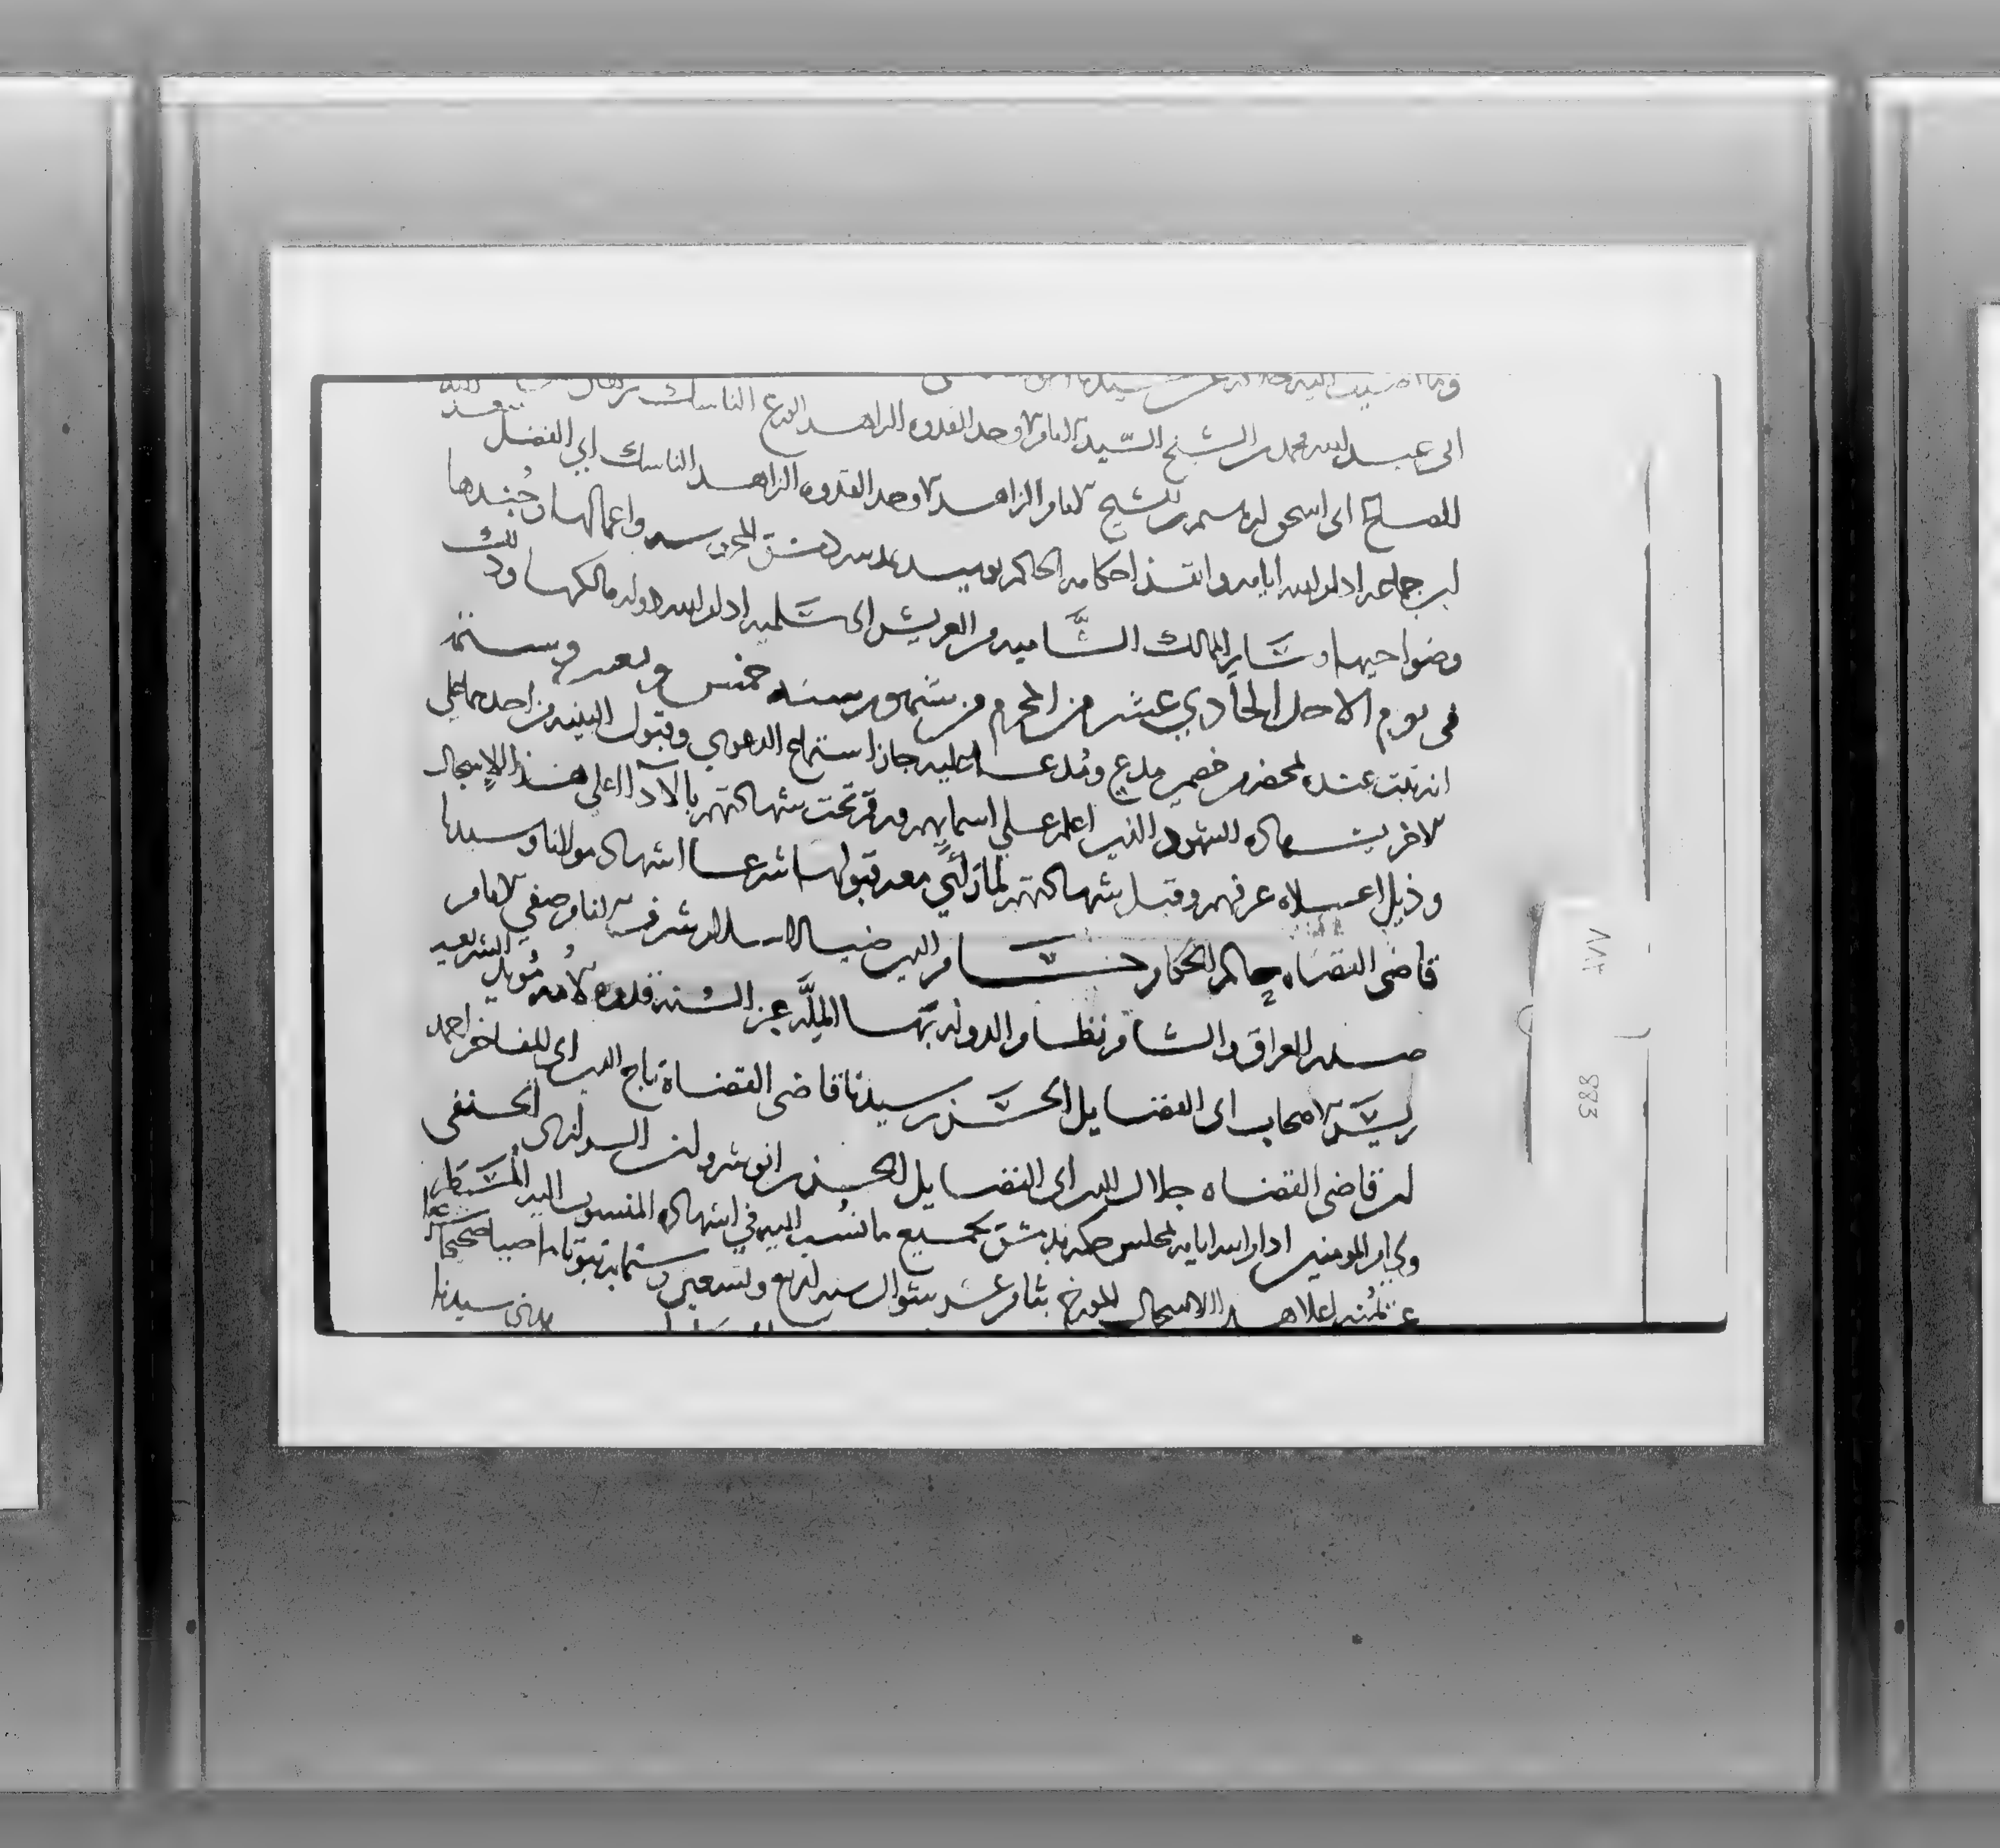 ابى عبد الله محمد بن الشيخ السيد الامام الاوحد القدوه الزاهد الورع الناسك برهان
الصلح ابى اسحق ابرهيم بن الشيخ الامام الزاهد الاوحد القدوه الزاهد الناسك ابي الفضل سعد
الله بن جماعه ادام الله ايامه وانفذ احكامه الحاكم يوميد بمدينه دمشق المحروسه واعمالها وجندها
وضواحيها وسَاير الممالك الشَّاميه من العريش الى سَلميه ادام الله دوله مالكها وذلك
في يوم الاحد الحادي عشر من المحرم من شهور سنه خمس وتسعين وستمايه
انه ثبت عنده بمحضر من خصمين مدع ومُدعا عليه جاز استماع الدعوى وقبول البينه من احدهما على
الاخر بشهاده الشهود الذين اعلم على اسمايهم ورقم تحت شهادتهم بالادآ اعلى هذا الاسجال
وذيل اعلاه عرفهم وقبل شهادتهم لما رأي معه قبولها شرعا اشهاد مولانا وسيدنا
قاضى القضاه حاكم الحكام حسَام الدين ضيا الاسلام شرف الانام صفي الامام
صدر العراق والشام نظام الدوله بهَا المِلَّه عز السنه قدوه الامه مُويد الشريعه
رييسَ الاصحاب ابى الفضايل الحسَن بن سيدنا قاضى القضاة تاج الدين ابى المفاخر احمد
بن قاضى القضاه جلال الدين ابى الفضايل الحسن بن انوشروان الرازى الحنفى
ولى امير المومنين ادام الله ايامه بمجلس حكمه بدمشق بجميع ما نسُب اليه في اشهاده المنسوب اليه المُسَطر
اعلا هذا الاسجال المورخ بثامن عشر شوال سنه اربع وتسعين وستمايه ثبوتا ماضيا صحيحا
سيدنا
٨٨٣
883